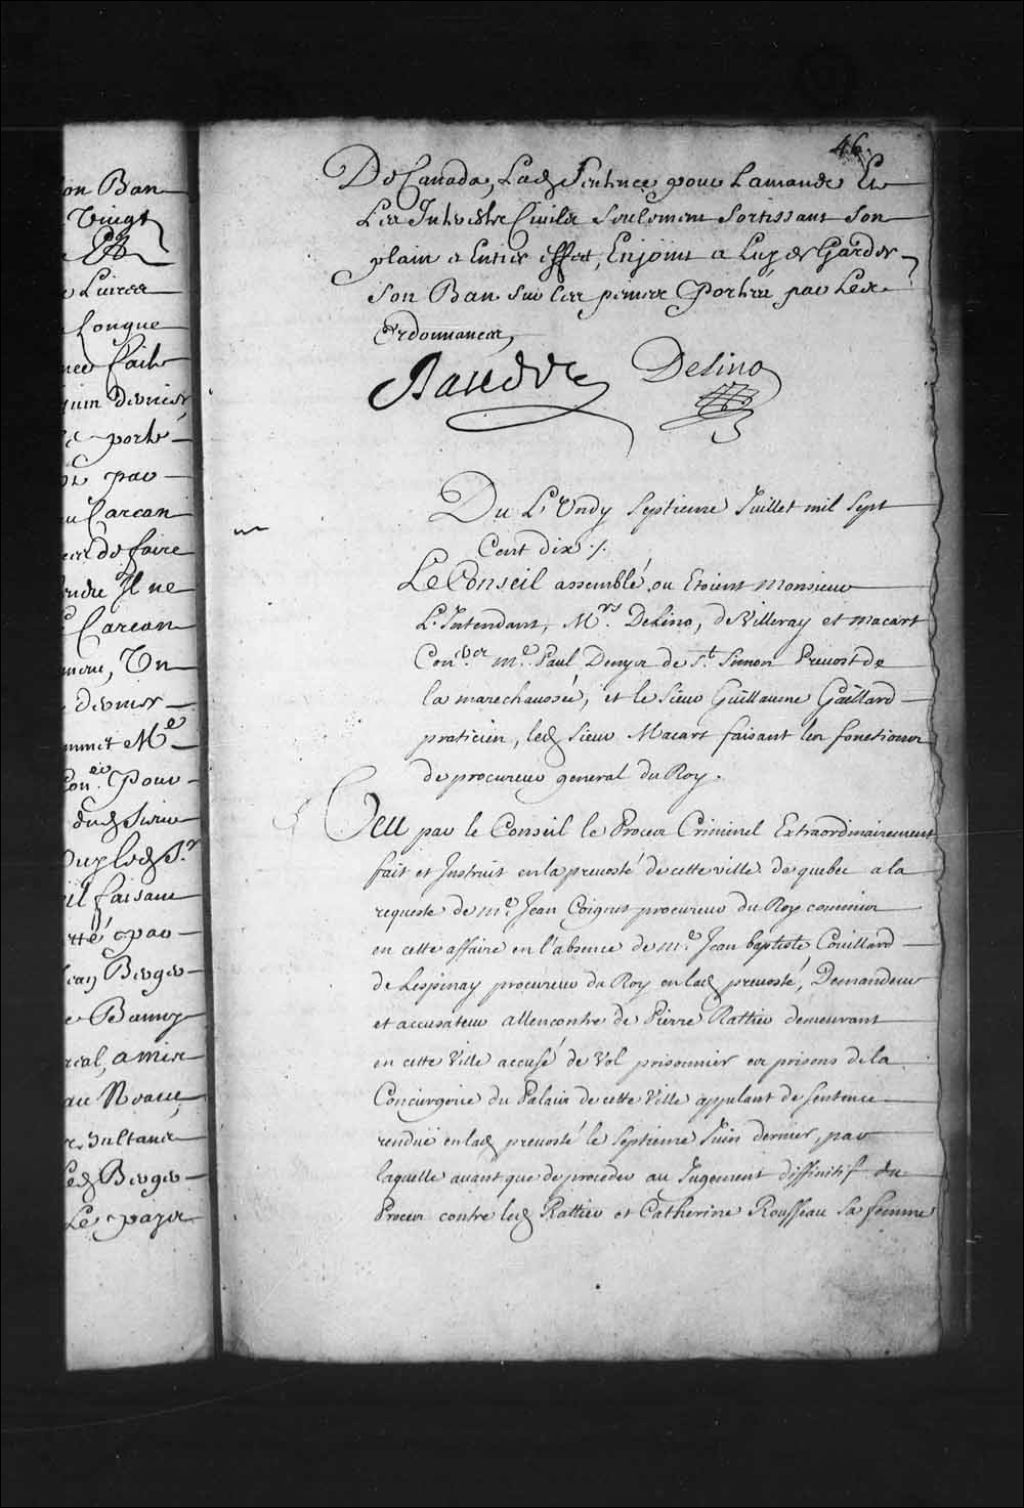 on Ban
Vingt
Livres
longue
nee faite
Juin dernier
e porté
par
au Carcan
de faire
Il ne
Carcan
Un
dernier
Me
Coner. Pour
dud. Sieur
led. Sr
il faisant
pao
Jean Berger
e Bannÿ
real, a mis
led. Berger
Le payer
46.
De Canada, Lad. Sentence pour Lamande Et
Les Interestz Civils Seulement Sortissant Son
plain et Entier effect, Enjoint a Luy de Garder
Son Ban Sur les peines Portées par Les
Ordonnances,
Raudot
Delino
Du Lundy Septieme Juillet mil Sept
Cent dix ./.
Le Conseil assemblé ou Etoient Monsieur
L'Intendant, Mrs. Delino, de Villeray et macart
Coners. me. Paul Denys de St. Simon Prevost de
la marechaussée, et le Sieur Guillaume Gaillard
praticien, led. Sieur Macart faisant les fonctions
de procureur general du Roy.
Veu par le Conseil le Proces Criminel Extraordinairement
fait et Instruit en la prevosté de cette ville de quebec a la
requeste de me. Jean Coignet procureur du Roy commis
en cette affaire en l'absence de me. Jean baptiste Couillard
de Lespinay procureur du Roy en lad. prevosté, Demandeur
et accusateur allencontre de Pierre Rattier demeurant
en cette Ville accusé de Vol prisonnier es prisons de la
Conciergerie du Palais de cette Ville appelant de sentence
rendüe en lad. prevosté le Septieme Juin dernier, par
laquelle avant que de proceder au Jugement diffinitif du
Proces contre led. Rattier et Catherine Rousseau sa femme